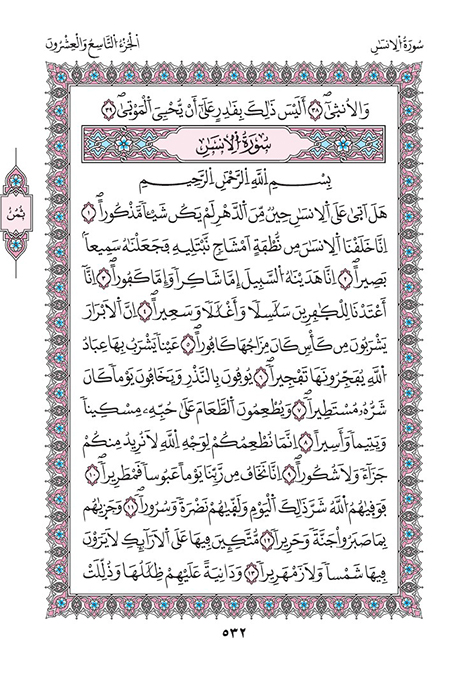 سُورَةُ الْإِنسَٰنِ
الْجُزْءُ التَّاسِعُ وَالْعِشْرُونَ
وَالْأُنثَىٰٓ ٣٨ أَلَيْسَ ذَٰلِكَ بِقَٰدِرٍ عَلَىٰٓ أَنْ يُّحْـِۧيَ الْمَوْتَىٰ ٣٩
سُورَةُ الْإِنسَٰنِ
بِسْمِ اللَّهِ الرَّحْمَٰنِ الرَّحِيمِ
هَلْ أَتَىٰ عَلَى الْإِنسَٰنِ حِينٌ مِّنَ الدَّهْرِ لَمْ يَكُن شَيْـًٔا مَّذْكُورًا ١
إِنَّا خَلَقْنَا الْإِنسَٰنَ مِن نُّطْفَةٍ أَمْشَاجٍ نَّبْتَلِيهِ فَجَعَلْنَٰهُ سَمِيعًا
بَصِيرًا ٢ إِنَّا هَدَيْنَٰهُ السَّبِيلَ إِمَّا شَاكِرًا وَإِمَّا كَفُورًا ٣ إِنَّآ
أَعْتَدْنَا لِلْكَٰفِرِينَ سَلَٰسِلًا وَأَغْلَٰلًا وَسَعِيرًا ٤ إِنَّ الْأَبْرَارَ
يَشْرَبُونَ مِن كَأْسٍ كَانَ مِزَاجُهَا كَافُورًا ٥ عَيْنًا يَشْرَبُ بِهَا عِبَادُ
اللَّهِ يُفَجِّرُونَهَا تَفْجِيرًا ٦ يُوفُونَ بِالنَّذْرِ وَيَخَافُونَ يَوْمًا كَانَ
شَرُّهُ مُسْتَطِيرًا ٧ وَيُطْعِمُونَ الطَّعَامَ عَلَىٰ حُبِّهِ مِسْكِينًا
وَيَتِيمًا وَأَسِيرًا ٨ إِنَّمَا نُطْعِمُكُمْ لِوَجْهِ اللَّهِ لَا نُرِيدُ مِنكُمْ
جَزَآءً وَلَا شُكُورًا ٩ إِنَّا نَخَافُ مِن رَّبِّنَا يَوْمًا عَبُوسًا قَمْطَرِيرًا ١٠
فَوَقَىٰهُمُ اللَّهُ شَرَّ ذَٰلِكَ الْيَوْمِ وَلَقَّىٰهُمْ نَضْرَةً وَسُرُورًا ١١ وَجَزَىٰهُم
بِمَا صَبَرُوا جَنَّةً وَحَرِيرًا ١٢ مُّتَّكِـِٔينَ فِيهَا عَلَى الْأَرَآئِكِ لَا يَرَوْنَ
فِيهَا شَمْسًا وَلَا زَمْهَرِيرًا ١٣ وَدَانِيَةً عَلَيْهِمْ ظِلَٰلُهَا وَذُلِّلَتْ
ثُمُن
٥٣٢